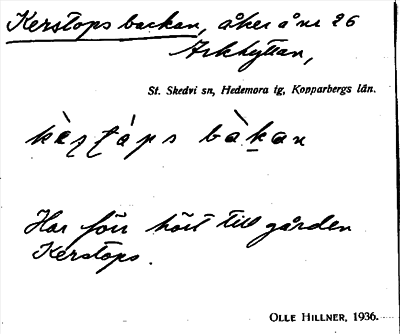 Kerstops backan, åker å nr 26
Arkhyttan,
St. Skedvi sn, Hedemora tg, Kopparbergs län.
kæ̀ʂʈåps bàkan
Har förr hört till gården
Kerstops.
OLLE HILLNER, 1936.